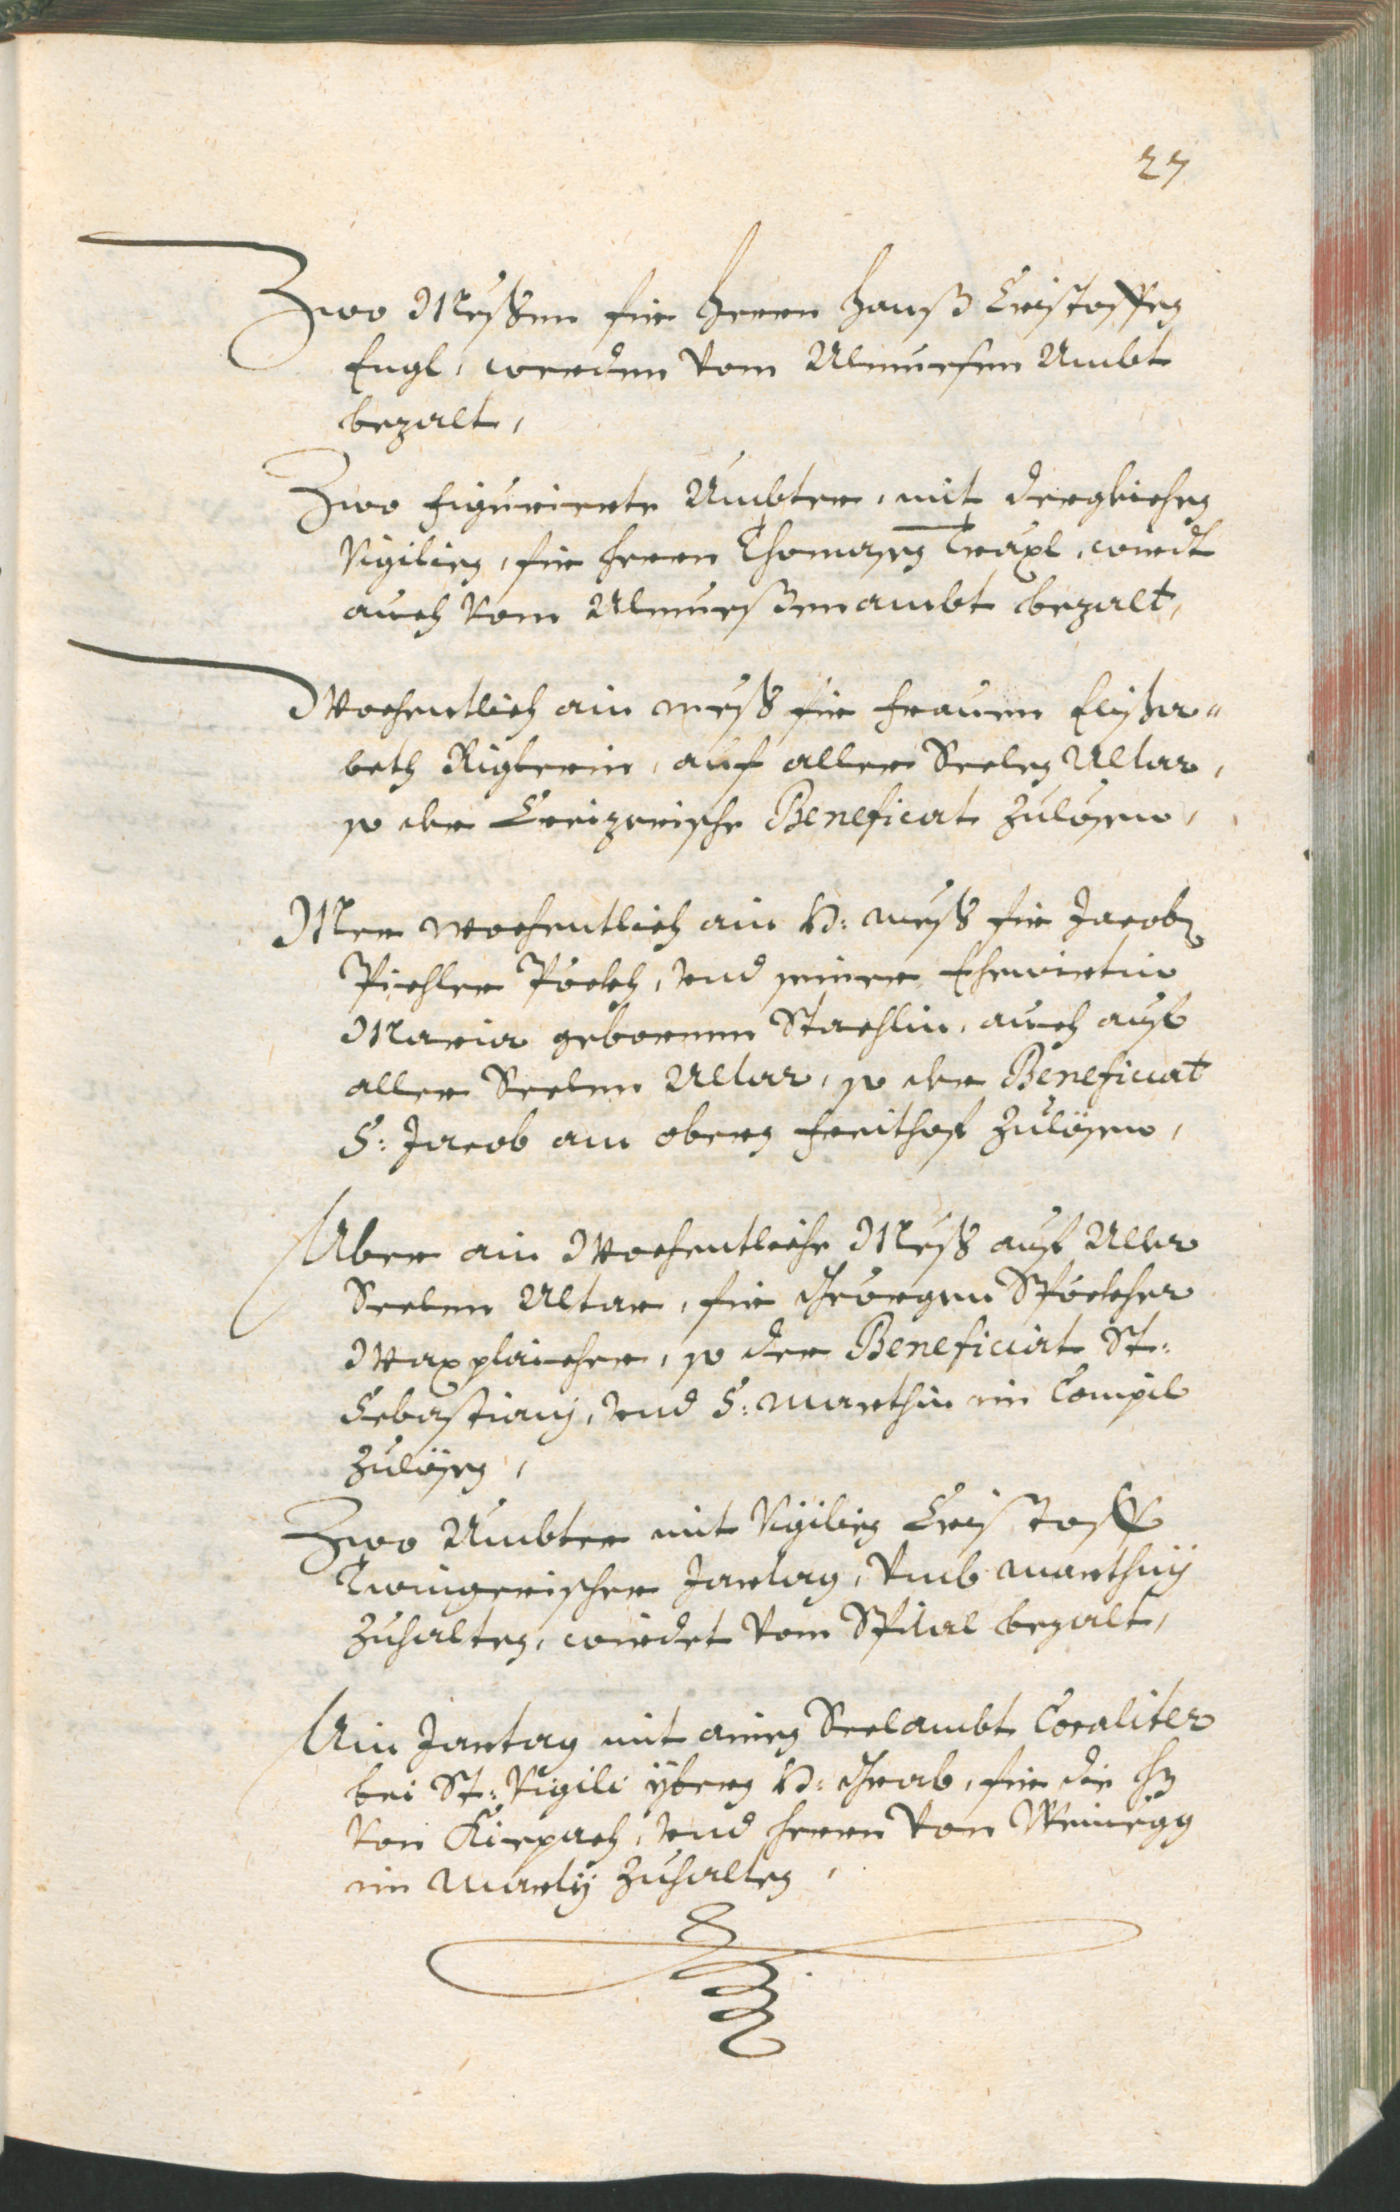 27
Zwo Messen für Herrn Hanß Cristoffen
Engl, werden vom Almuesen Ambt
bezalt,
Zwo figurierte Ambter, mit dergleichen
Vigilien, für Herrn Thomasen Traxl, wirdt
auch vom Almueßenambt bezalt,
Wochentlich ain mess für Frauen Elisa-
beth Riglerin, auf aller Seelen Altar,
so der Creizerische Beneficiat zulesen,
Mer wochentlich ain H: mess für Jacoben
Pichler Pöckh, vnd seiner Ehewirtin
Maria gebornen Stachlin, auch auf
aller Seelen Altar, so der Beneficiat
S: Jacob am obern Freithof zulösen,
Aber ain Wochentliche Mess auf Aller
Seelen Altar, für Georgen Spöckher
Waxplaicher, so der Beneficiat St:
Sebastiany, vnd S: Marthin im Compil
zulösen,
Zwo Ambter mit Vigilien Cristoff
Zwingerischer Jartag, vmb Marthiny
zuhalten, wirdet vom Spital bezalt,
Ain Jartag mit ainen Seelambt Coraliter
bei St: Vigili yberm H: Grab, für die Hn
von Kirpach, vnd Herrn von Weinegg
im Marty zuhalten,